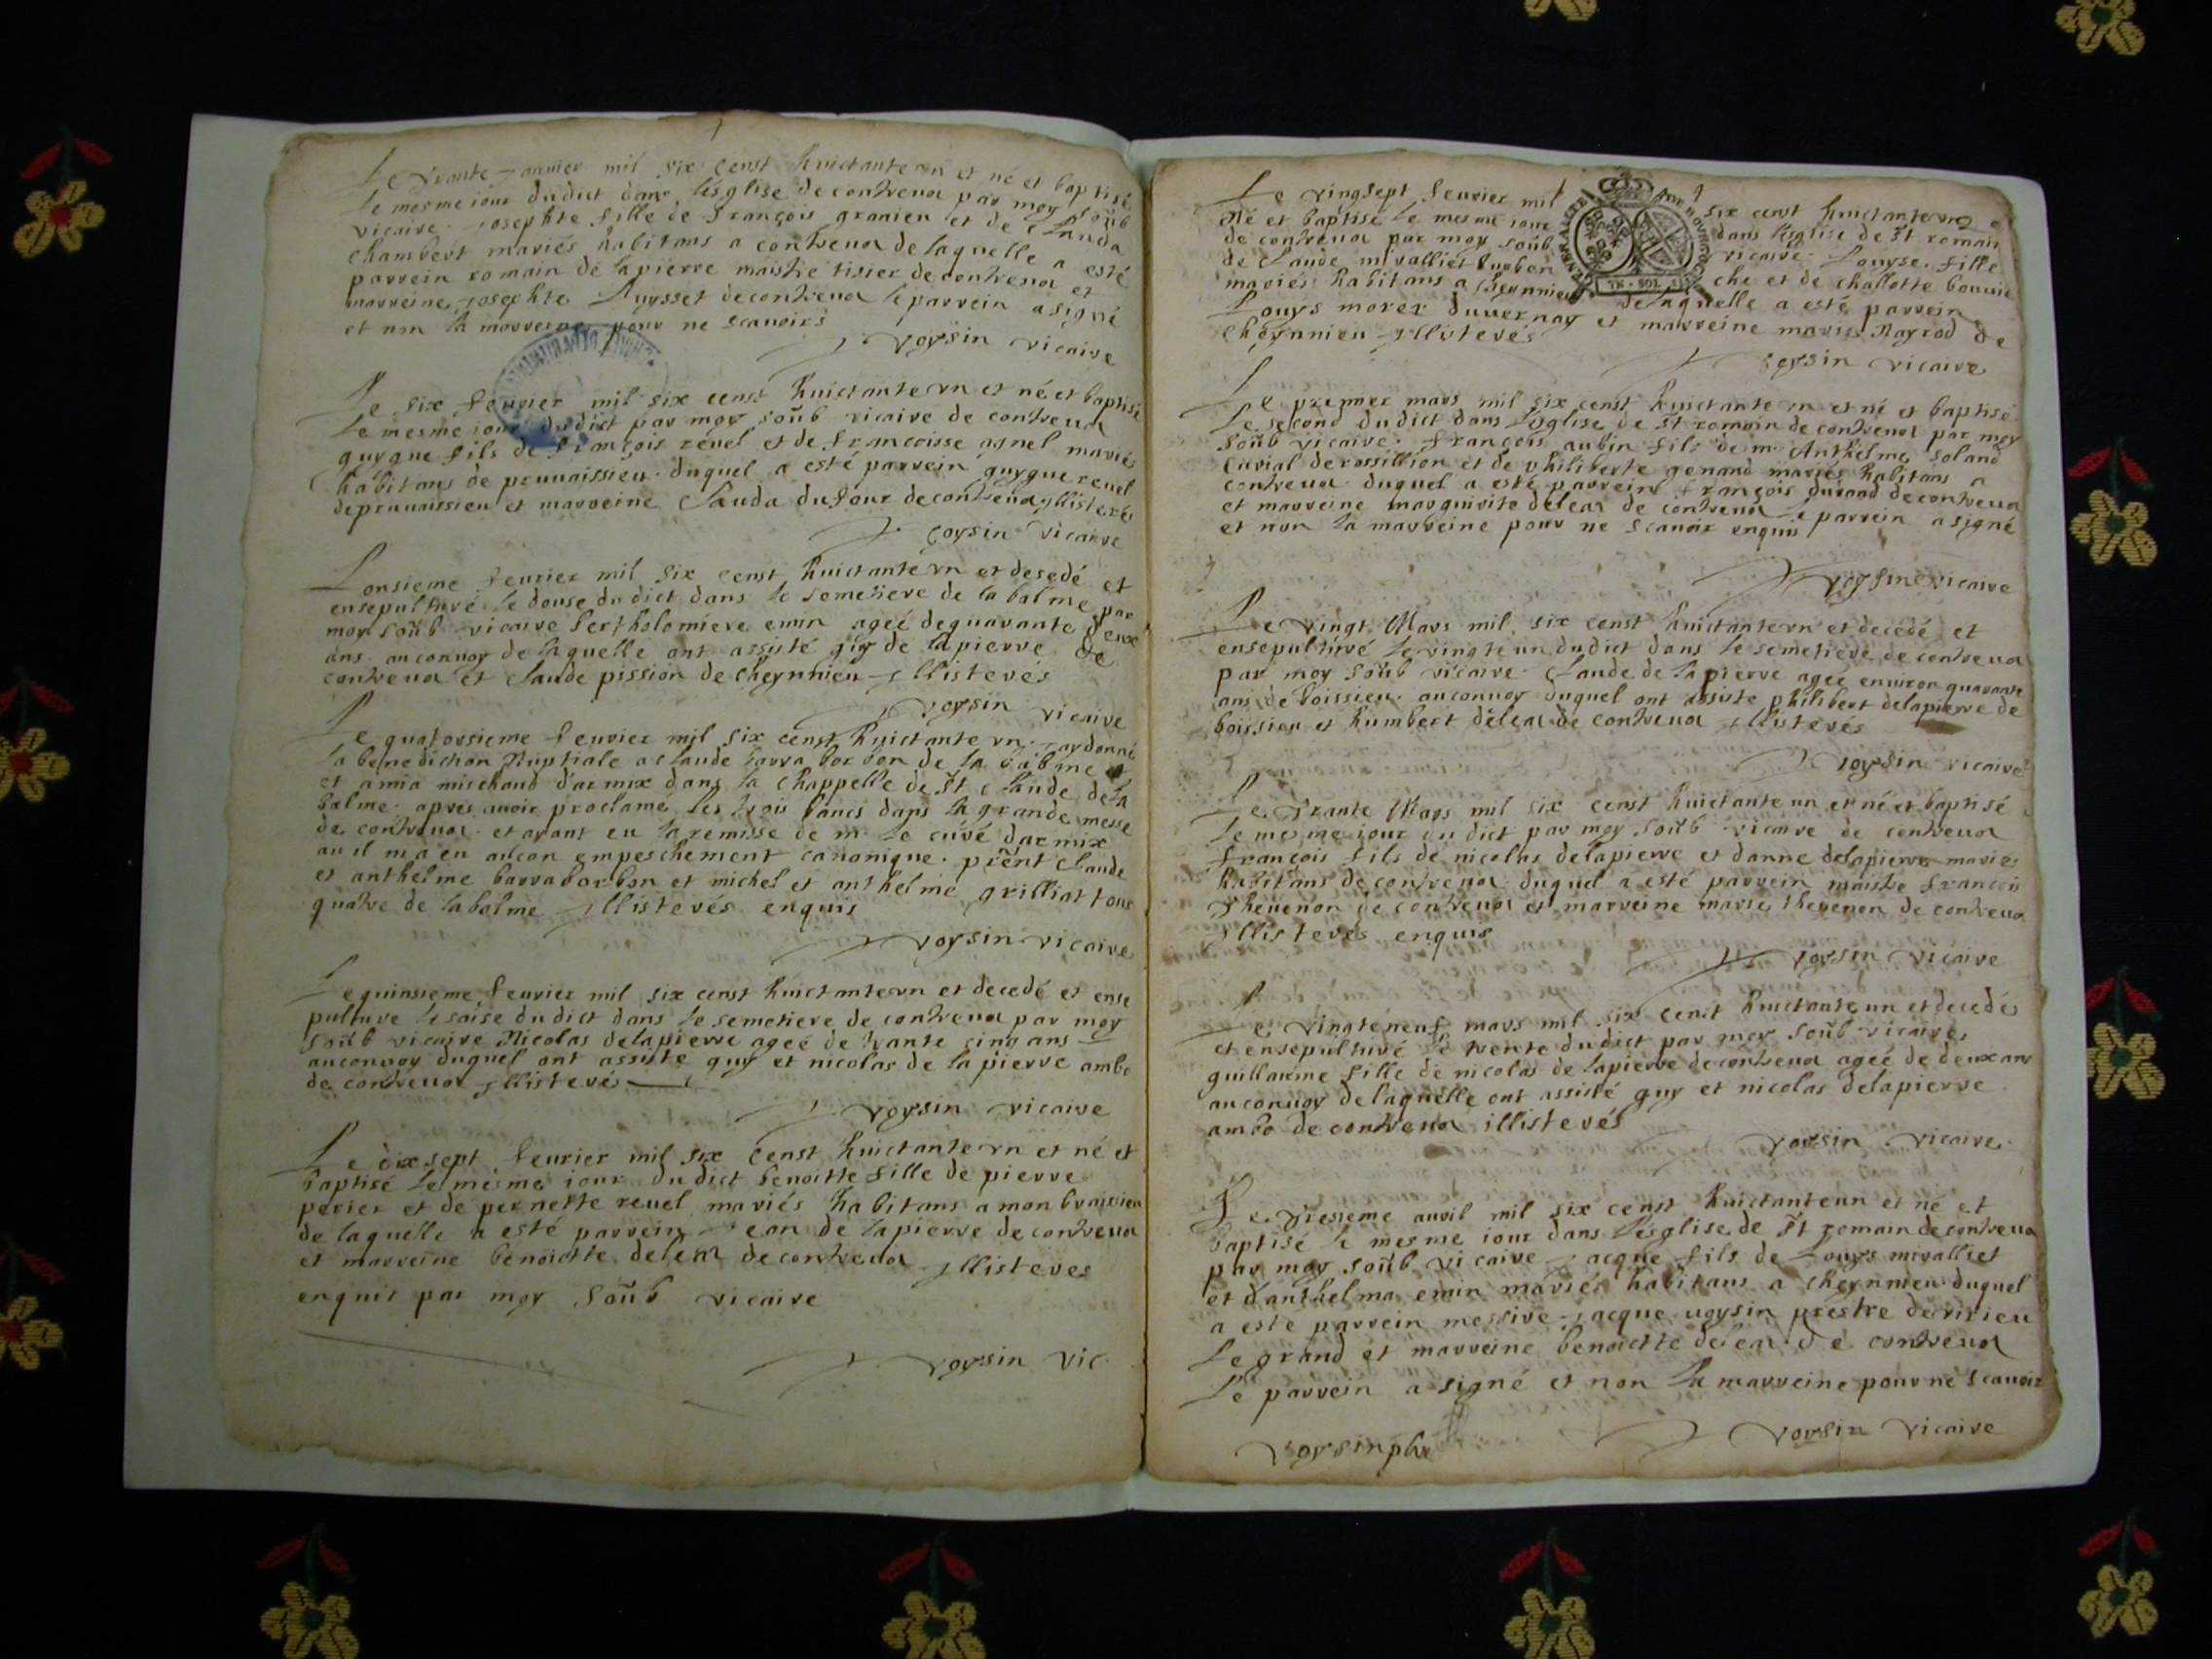 Le trante Janvier mil six censt huictante vn et né et baptisé
le mesme iour dudict dans lésglise de contreuoz par moy soûb
vicaire. josephte fille de françois granieu et de Clauda
chambert mariés habitans a contreuoz de laquelle a esté
parrein romain de lapierre maistre tisier de contreuoz et
marreine josephte Puysset decontreuoz le parrein a signé
et non la marreine pour ne scauoir
voysin vicaire
Le six feurier mil six censt huictante vn et né et baptisé
le mesme iour dudict par moy soûb vicaire de contreuoz
guygue fils de françois reuel et de francoisse agnel mariés
habitans de pruuaissieu. duquel a esté parrein guygue reuel
depruuaissieu et marreine Clauda dufour decontreuoz jllisterés
voysin vicaire
Lonsieme feurier mil six censt huictante vn et desedé et
ensepulturé le douse dudict dans le semetiere de la balme par
moy soûb vicaire bertholomiere emin ageé dequarante deux
ans. auconuoy de laquelle ont assisté guy de lapierre de
contreuoz et Claude pission de cheynnieu jllisterés
voysin vicaire
Le quatorsieme feurier mil six censt huictante vn. jaydonné
la benediction Nuptiale a claude barra borbon de la balme et
et amia mischaud d'armix dans la chappelle de St Claude dela
balme. apres auoir proclamé les trois bancs dans la grande messe
de contreuoz. et ayant eu la remisse de mr le curé d'armix
au il ma eu aulcon empeschement canonique. prênt Claude
et anthelme barraborbon et michel et anthelme grilliat tous
quatre de labalme jllisterés enquis
voysin vicaire
Le quinsieme feurier mil six censt huictante vn et decedé et ense
pulture lesaise dudict dans le semetiere de contreuoz par moy
soûb vicaire Nicolas delapierre ageé de trante cinq ans
auconuoy duquel ont assisté guy et nicolas de la pierre ambo
de contreuoz jllisterés
voysin vicaire
Le dix sept feurier mil six censt huictante vn et né et
baptisé le mesme iour dudict benoitte fille de pierre
perier et de pernette reuel mariés habitans a monbraissieu
de laquelle a esté parrein Jean de lapierre de contreuoz
et marreine benoictte deleaz decontreuoz jllisteres
enquis par moy soûb vicaire
voysin vic.
Le vingsept feurier mil six censt huictante vn
Né et baptisé le mesme iour dans léglise de St romain
de contreuoz par moy soûb vicaire. Louyse fille
de Claude mivalliet che et de challotte bouuié
mariés habitans a cheynnieu delaquelle a esté parrein
Louys morez duuernay et marreine marie Nayrod de
cheynnieu jllisterés
voysin vicaire
GENERALITE DE BOVRGOGNE
VN · SOL
Le premier mars mil six censt huictante vn et né et baptisé
le second dudict dans léglise de St romain de contreuoz par moy
soûb vicaire. françois aubin fils de mr Anthelme Soland
curial derossillion et de philiberte genand mariés habitans a
contreuoz duquel a esté parrein françois durand decontreuoz
et marreine marguirite deleaz de contreuoz le parrein a signé
et non la marreine pour ne scauoir enquis
voysin vicaire
Le vingt Mars mil six censt huictante vn et decedé et
ensepulturé levingte un dudict dans le semetiere de contreuoz
par moy soûb vicaire. Claude de lapierre ageé enuiron quarante
ans de boissieu. auconuoy duquel ont assisté philibert delapierre de
boissieu et humbert deleaz de contreuoz jllisterés
voysin vicaire
Le trante Mars mil six censt huictante un et né et baptisé
le mesme iour dudict par moy soûb vicaire de contreuoz
françois fils de nicolas delapierre et danne delapierre mariés
habitans de contreuoz duquel a esté parrein maistre françois
theuenon de contreuoz et marreine marie theuenon de contreuoz
jllisterés enquis
voysin vicaire
Le vingteneuf mars mil six censt huictante un et decedés
et ensepulturé le trente dudict par moy soûb vicaires
guillaume fille de nicolas de lapierre de contreuoz ageé de deux ans
auconuoy de laquelle ont assisté guy et nicolas delapierre
ambo de contreuoz illisterés
voysin vicaire.
Le tresieme auril mil six censt huictante un et né et
baptisé le mesme iour dans lésglise de St romain de contreuoz
par moy soûb vicaire jacque fils de Louys mivalliet
et d'anthelma emin mariés habitans a cheynnieu duquel
a este parrein messire jacque uoysin prestre de virieu
le grand et marreine benoictte deleaz de contreuoz
Le parrein a signé et non la marreine pour ne scauoir
voysin vicaire
voysin pbr